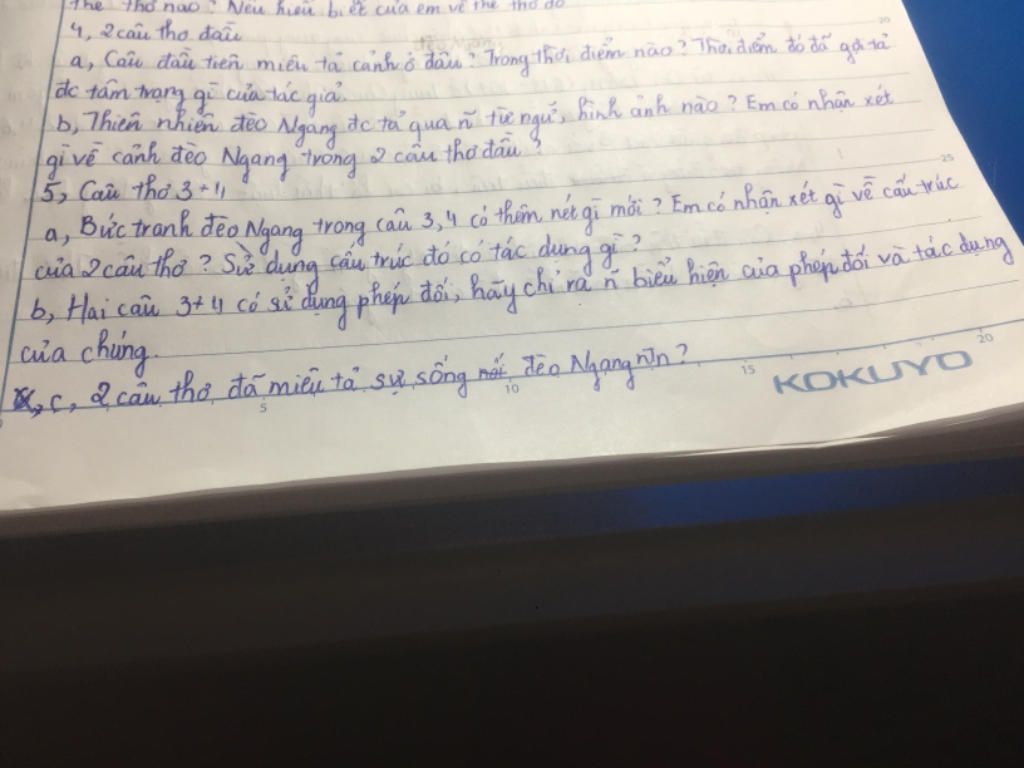 thể thơ nào? Nêu hiểu biết của em về thể thơ đó
4, 2 câu thơ đầu
a, Câu đầu tiên miêu tả cảnh ở đâu? Trong thời điểm nào? Thời điểm đó đã gợi tả
đc tâm trạng gì của tác giả.
b, Thiên nhiên đèo Ngang đc tả qua n~ từ ngữ, hình ảnh nào? Em có nhận xét
gì về cảnh đèo Ngang trong 2 câu thơ đầu?
5, Câu thơ 3+4
a, Bức tranh đèo Ngang trong câu 3, 4 có thêm nét gì mới? Em có nhận xét gì về cấu trúc
của 2 câu thơ? Sử dụng cấu trúc đó có tác dung gì?
b, Hai câu 3+4 có sử dụng phép đối, hãy chỉ ra n~ biểu hiện của phép đối và tác dụng
của chúng.
c, 2 câu thơ đã miêu tả sự sống đèo Ngang ntn?
5 10 15 20
KOKUYO
20
25